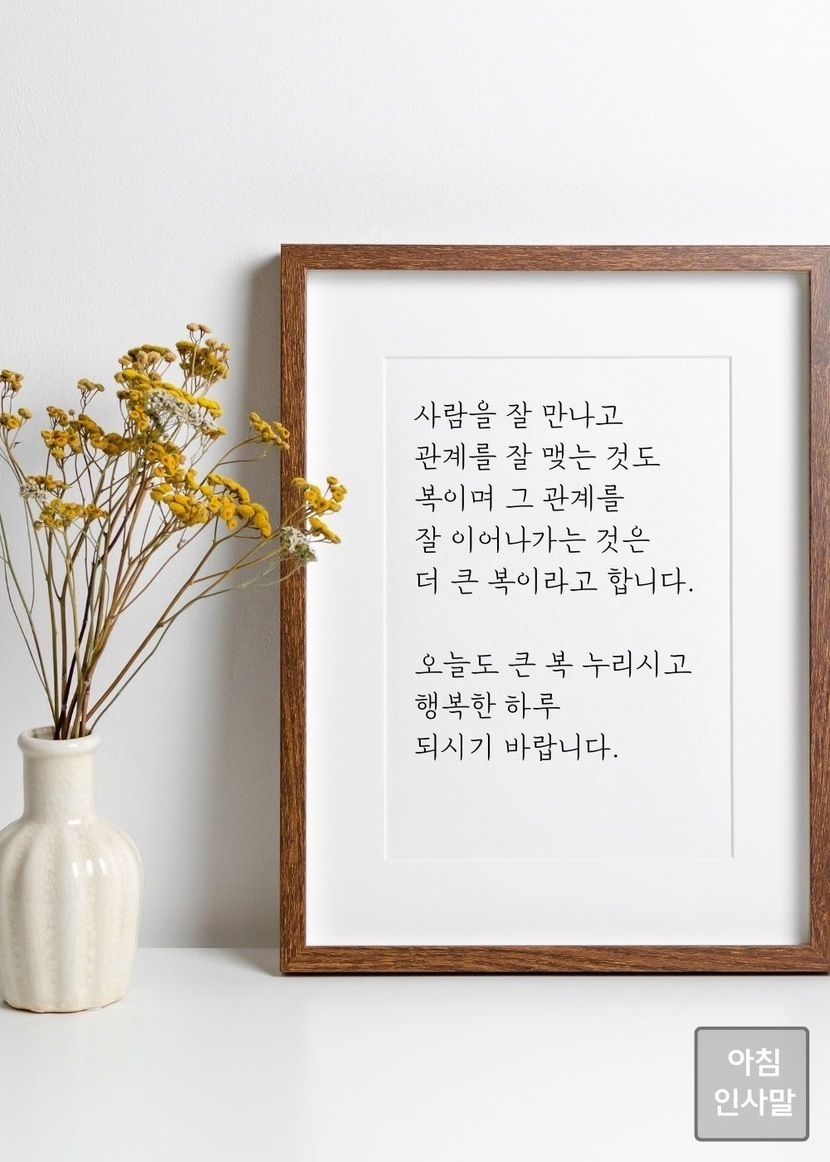 사람을 잘 만나고
관계를 잘 맺는 것도
복이며 그 관계를
잘 이어나가는 것은
더 큰 복이라고 합니다.
오늘도 큰 복 누리시고
행복한 하루
되시기 바랍니다.
아침
인사말